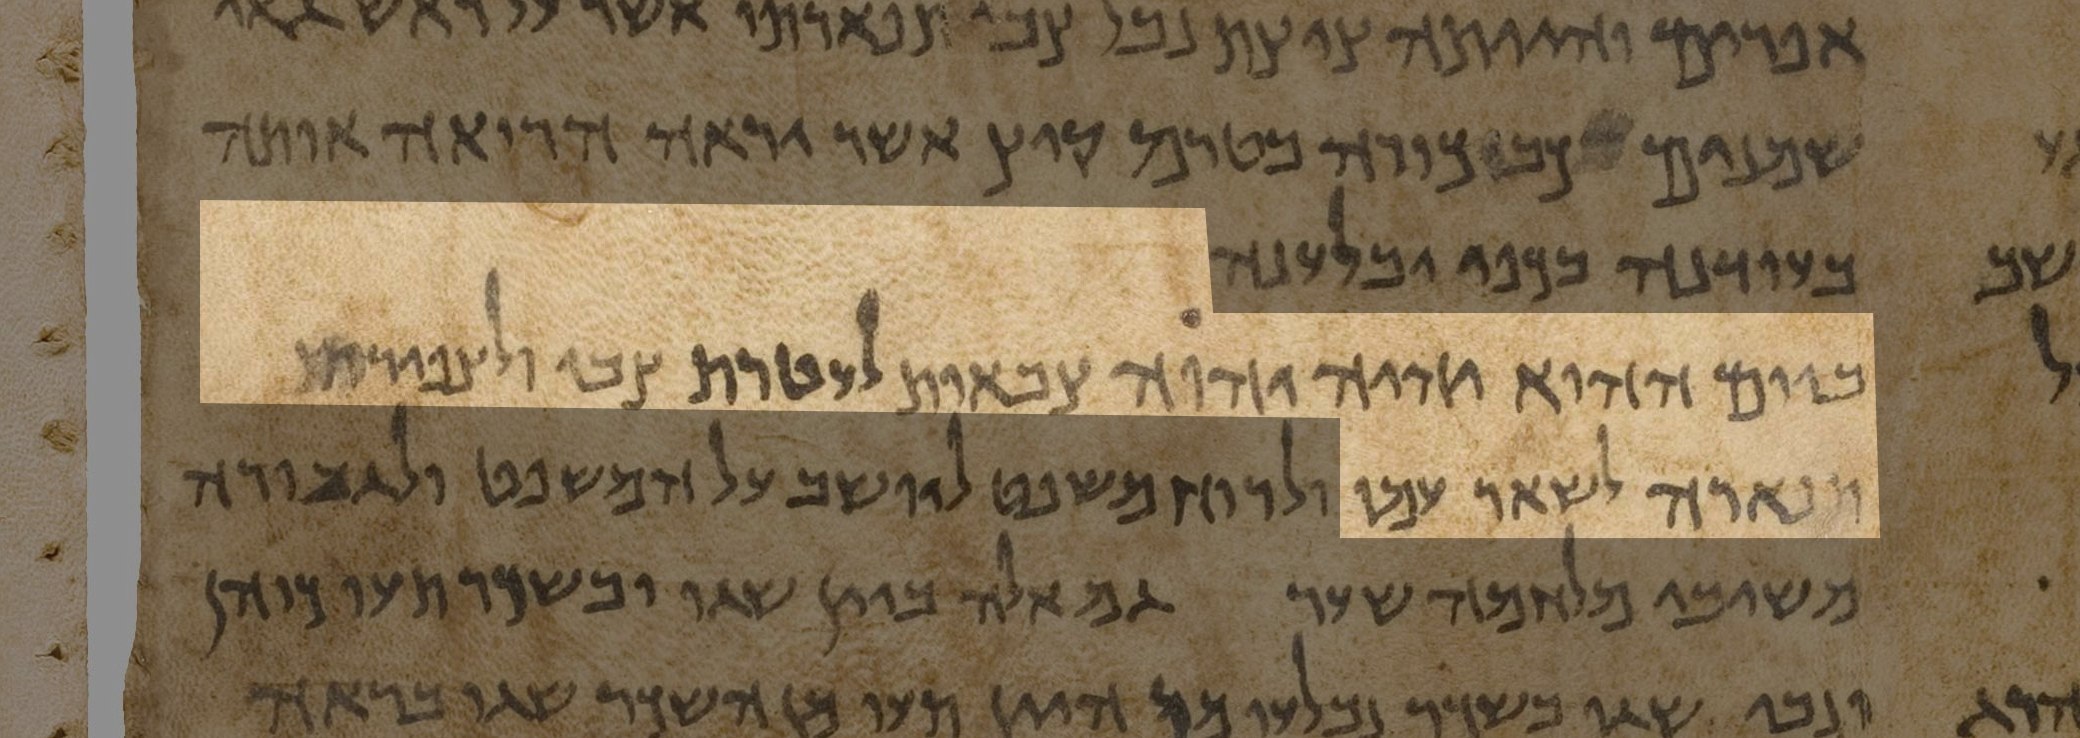 אפרים והייתה ציצת נבל צבי תפארתו אשר על ראש גאי
שמנים כבכורה בטרם קיץ אשר יראה הרואה אותה
בעודנה בכפו יבלענה
ביום ההוא יהיה יהוה צבאות לעטרת צבי ולצפירת
תפארה לשאר עמו ולרוח משפט ליושב על המשפט ולגבורה
משיבי מלחמה שער גם אלה ביין שגו ובשכר תעו כוהן
ונביא שגו בשכר נבלעו מן היין תעו מן השכר שגו בראה